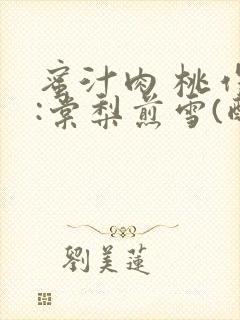 蜜汁肉桃作
:棠梨煎雪(酥
劉美蓮